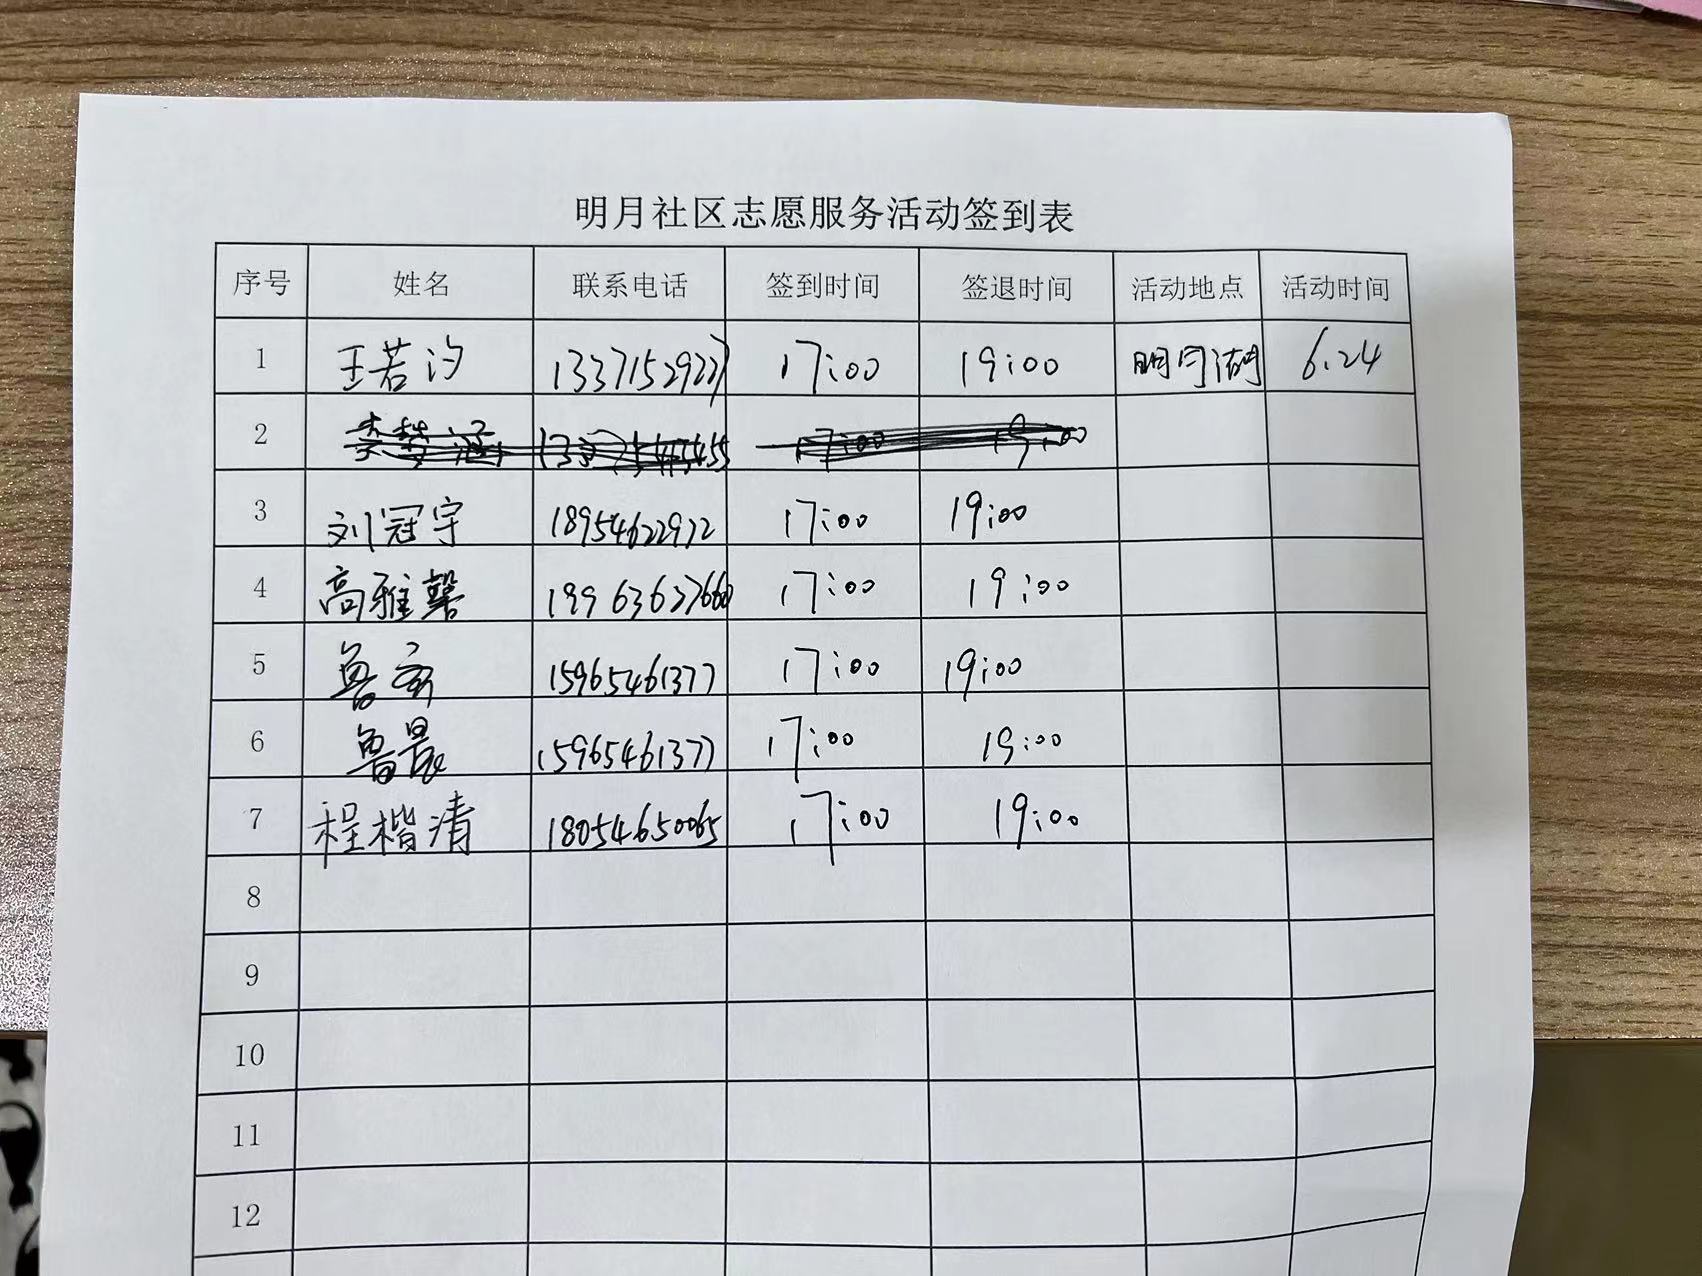 明月社区志愿服务活动签到表
序号 姓名 联系电话 签到时间 签退时间 活动地点 活动时间
1 王若汐 13371529227 17:00 19:00 明月湖 6.24
2 17:00 19:00
3 刘冠宇 18954622972 17:00 19:00
4 高雅馨 19963637660 17:00 19:00
5 鲁 15965461377 17:00 19:00
6 鲁晨 15965461377 17:00 19:00
7 程楷清 18054650065 17:00 19:00
8
9
10
11
12